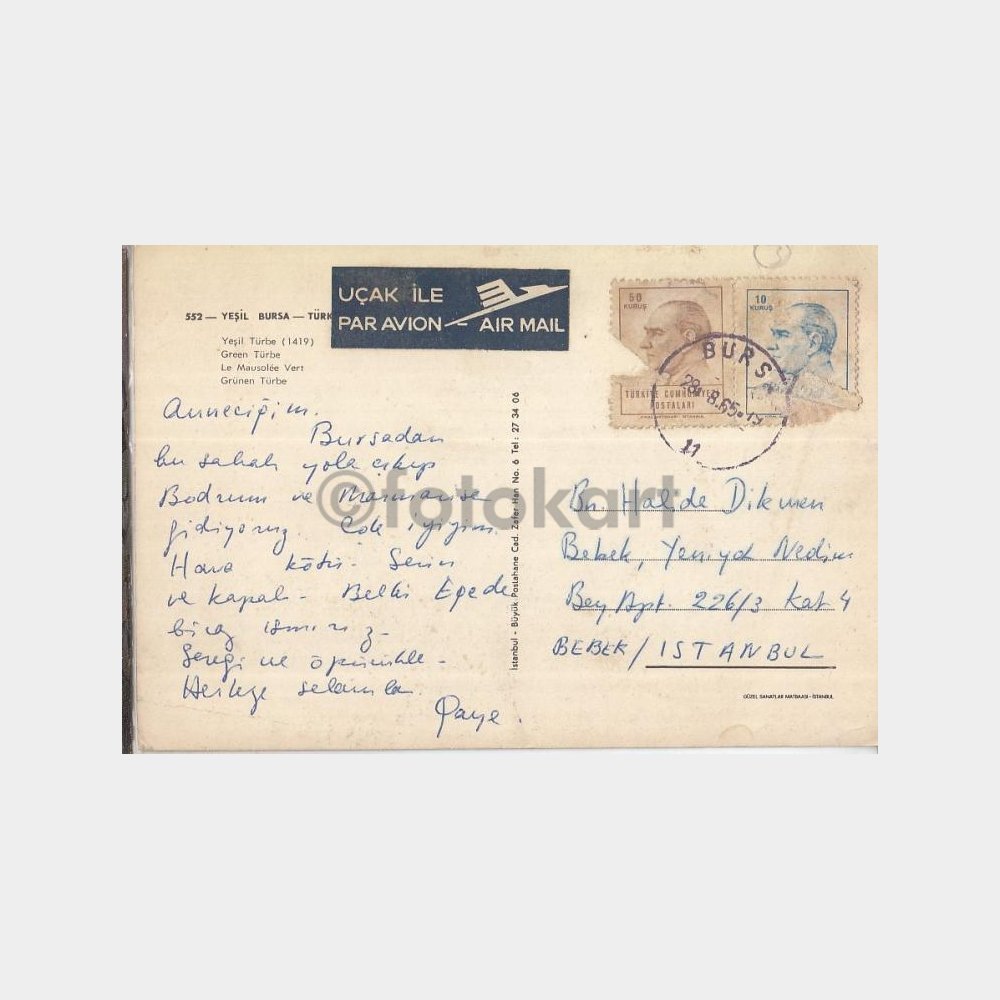 552 — YEŞİL BURSA — TÜRK
Yeşil Türbe (1419)
Green Türbe
Le Mausolée Vert
Grünen Türbe
UÇAK İLE
PAR AVION — AIR MAIL
50
KURUŞ
TÜRKİYE CUMHURİYETİ
POSTALARI
10
KURUŞ
BURS
28.8.65-19
11
Anneciğim.
Bursadan
bu sabah yola çıkıp
Bodrum ve Marmarise
gidiyoruz. Çok iyiyim.
Hava kötü. Serin
ve kapalı. Belki Egede
biraz ısınırız.
Sevgi ve öpücükle.
Herkese selamlar.
İstanbul - Büyük Postahane Cad. Zafer Han No. 6 Tel: 27 34 06
Bn. Halide Dikmen
Bebek, Yeniyol Nedim
Bey Apt. 226/3 Kat 4
BEBEK / ISTANBUL
GÜZEL SANATLAR MATBAASI - İSTANBUL
©fotokart